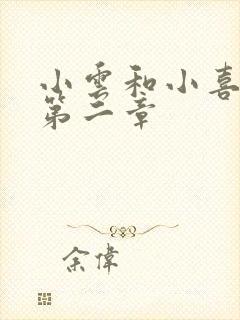 小雲和小喜
第二章
余偉